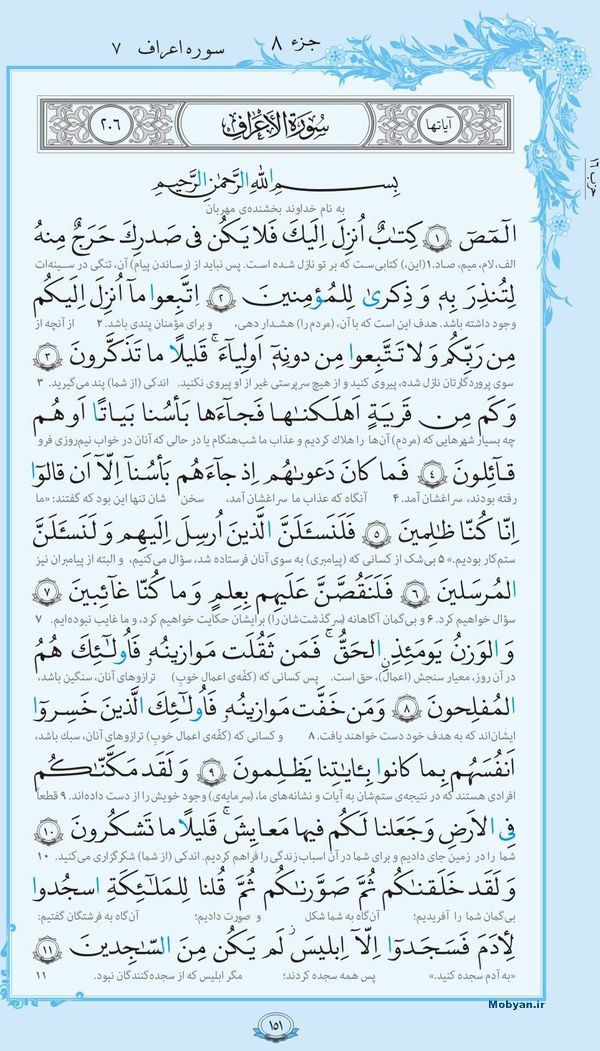 جزء ۸
سوره اعراف ۷
حزب ۱۶
آیاتها
سورة الأعراف
۲۰۶
بسم الله الرحمن الرحيم
به نام خداوند بخشنده‌ی مهربان
الٓمٓصٓ ۱ كِتٰبٌ اُنزِلَ اِلَيكَ فَلا يَكُن فى صَدرِكَ حَرَجٌ مِنهُ
الف، لام، میم، صاد. ۱ (این،) کتابی‌ست که بر تو نازل شده است. پس نباید از (رساندن پیام) آن، تنگی در سینه‌ات
لِتُنذِرَ بِهٖ وَ ذِكرىٰ لِلمُؤمِنينَ ۲ اِتَّبِعوا مآ اُنزِلَ اِلَيكُم
وجود داشته باشد. هدف این است که با آن، (مردم را) هشدار دهی، و برای مؤمنان پندی باشد. ۲ از آنچه از
مِن رَبِّكُم وَ لا تَتَّبِعوا مِن دونِهٖٓ اَولِيآءَ ۚ قَليلًا ما تَذَكَّرونَ ۳
سوی پروردگارتان نازل شده، پیروی کنید و از هیچ سرپرستی غیر از او پیروی نکنید. اندکی (از شما) پند می‌گیرید. ۳
وَ كَم مِن قَريَةٍ اَهلَكنٰها فَجآءَها بَأسُنا بَياتًا اَو هُم
چه بسیار شهرهایی که (مردم) آن‌ها را هلاک کردیم و عذاب ما شب‌هنگام یا در حالی که آنان در خواب نیم‌روزی فرو
قآئِلونَ ۴ فَما كانَ دَعوىٰهُم اِذ جآءَهُم بَأسُنآ اِلّآ اَن قالوٓا
رفته بودند، سراغشان آمد. ۴ آنگاه که عذاب ما سراغشان آمد، سخن شان تنها این بود که گفتند: «ما
اِنّا كُنّا ظٰلِمينَ ۵ فَلَنَسـَٔلَنَّ الَّذينَ اُرسِلَ اِلَيهِم وَ لَنَسـَٔلَنَّ
ستم‌کار بودیم.» ۵ بی‌شک از کسانی که (پیامبری) به سوی آنان فرستاده شد، سؤال می‌کنیم، و البته از پیامبران نیز
المُرسَلينَ ۶ فَلَنَقُصَّنَّ عَلَيهِم بِعِلمٍ وَ ما كُنّا غآئِبينَ ۷
سؤال خواهیم کرد. ۶ و بی‌گمان آگاهانه (سرگذشت‌شان را) برایشان حکایت خواهیم کرد، و ما غایب نبوده‌ایم. ۷
وَ الوَزنُ يَومَئِذٍ الحَقُّ ۚ فَمَن ثَقُلَت مَوازينُهٗ فَاُولٰٓئِكَ هُمُ
در آن روز، معیار سنجش (اعمال)، حق است. پس کسانی که (کفّه‌ی اعمال خوبِ) ترازوهای آنان، سنگین باشد،
المُفلِحونَ ۸ وَ مَن خَفَّت مَوازينُهٗ فَاُولٰٓئِكَ الَّذينَ خَسِروٓا
ایشان‌اند که به هدف خود دست خواهند یافت. ۸ و کسانی که (کفّه‌ی اعمال خوبِ) ترازوهای آنان، سبک باشد،
اَنفُسَهُم بِما كانوا بِـٔايٰتِنا يَظلِمونَ ۹ وَ لَقَد مَكَّنّٰكُم
افرادی هستند که در نتیجه‌ی ستم‌شان به آیات و نشانه‌های ما، (سرمایه‌ی) وجود خویش را از دست داده‌اند. ۹ قطعاً
فِى الاَرضِ وَ جَعَلنا لَكُم فيها مَعايِشَ ۗ قَليلًا ما تَشكُرونَ ۱۰
شما را در زمین جای دادیم و برای شما در آن اسباب زندگی را فراهم کردیم. اندکی (از شما) شکرگزاری می‌کنید. ۱۰
وَ لَقَد خَلَقنٰكُم ثُمَّ صَوَّرنٰكُم ثُمَّ قُلنا لِلمَلٰٓئِكَةِ اسجُدوا
بی‌گمان شما را آفریدیم؛ آن‌گاه به شما شکل و صورت دادیم؛ آن‌گاه به فرشتگان گفتیم:
لِأدَمَ فَسَجَدوٓا اِلّآ اِبليسَ لَم يَكُن مِنَ السّٰجِدينَ ۱۱
«به آدم سجده کنید.» پس همه سجده کردند؛ مگر ابلیس که از سجده‌کنندگان نبود. ۱۱
Mobyan.ir
۱۵۱